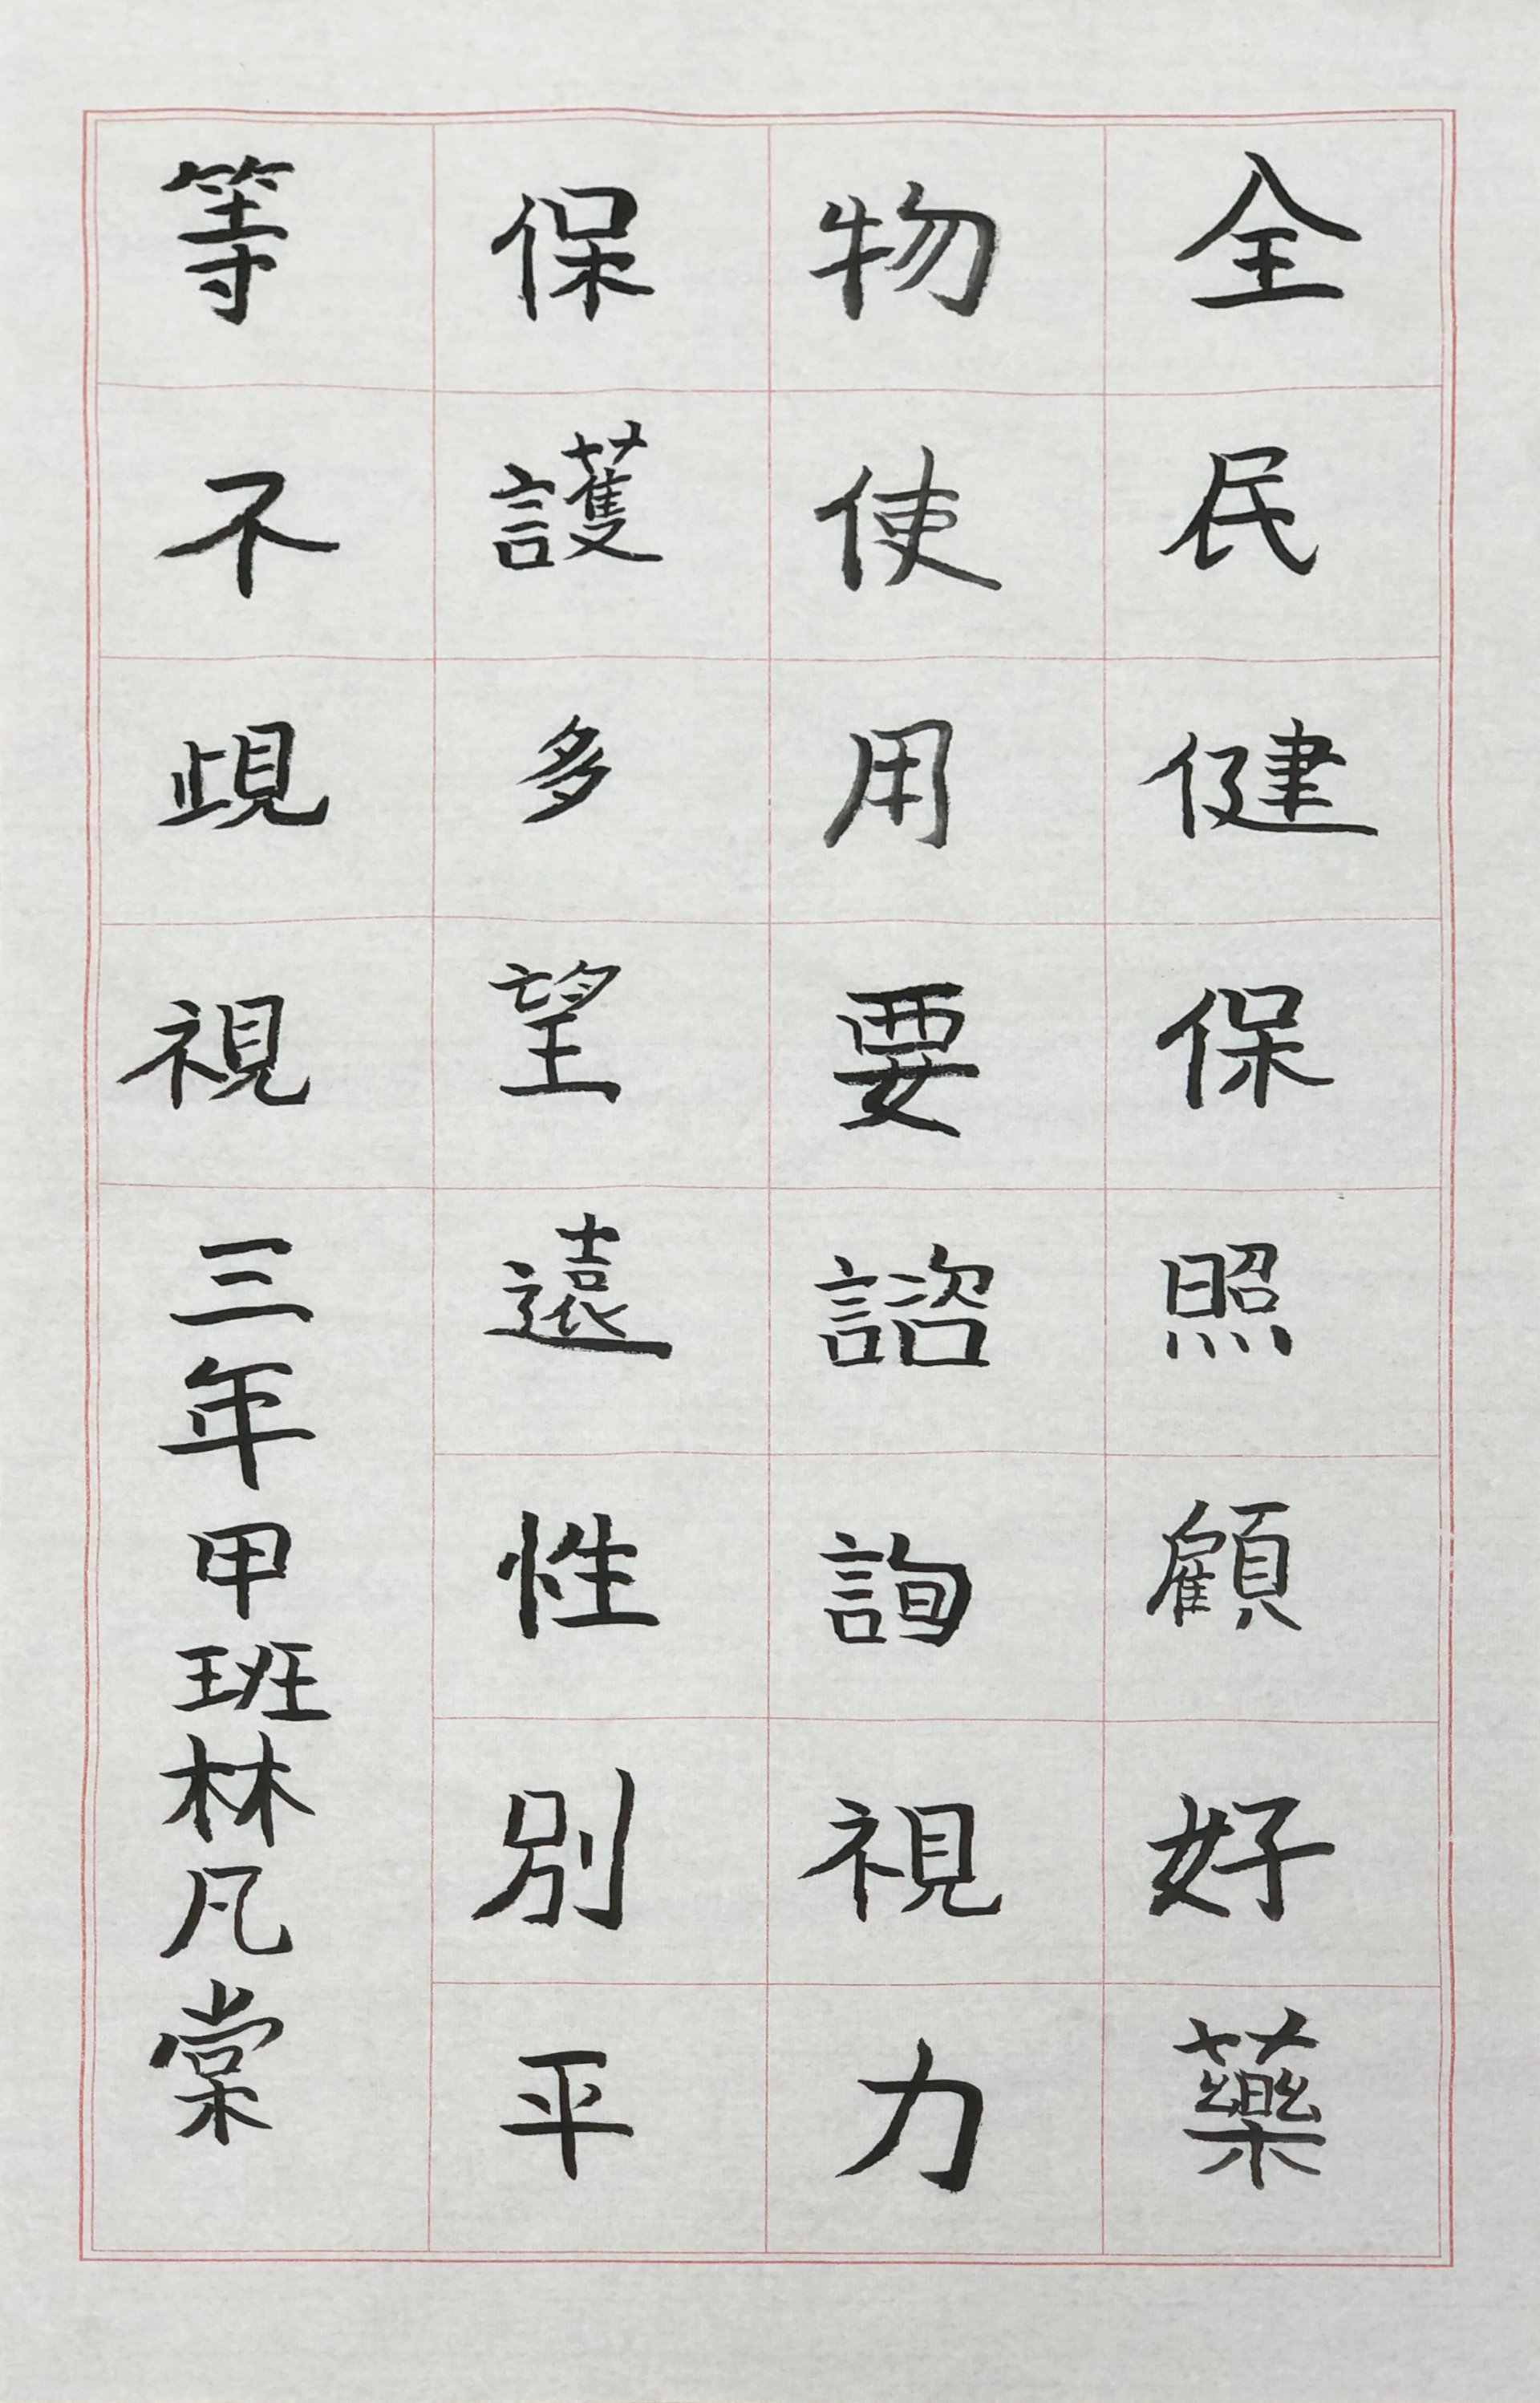 全民健保照顧好藥
物使用要諮詢視力
保護多望遠性別平
等不歧視三年甲班林凡棠